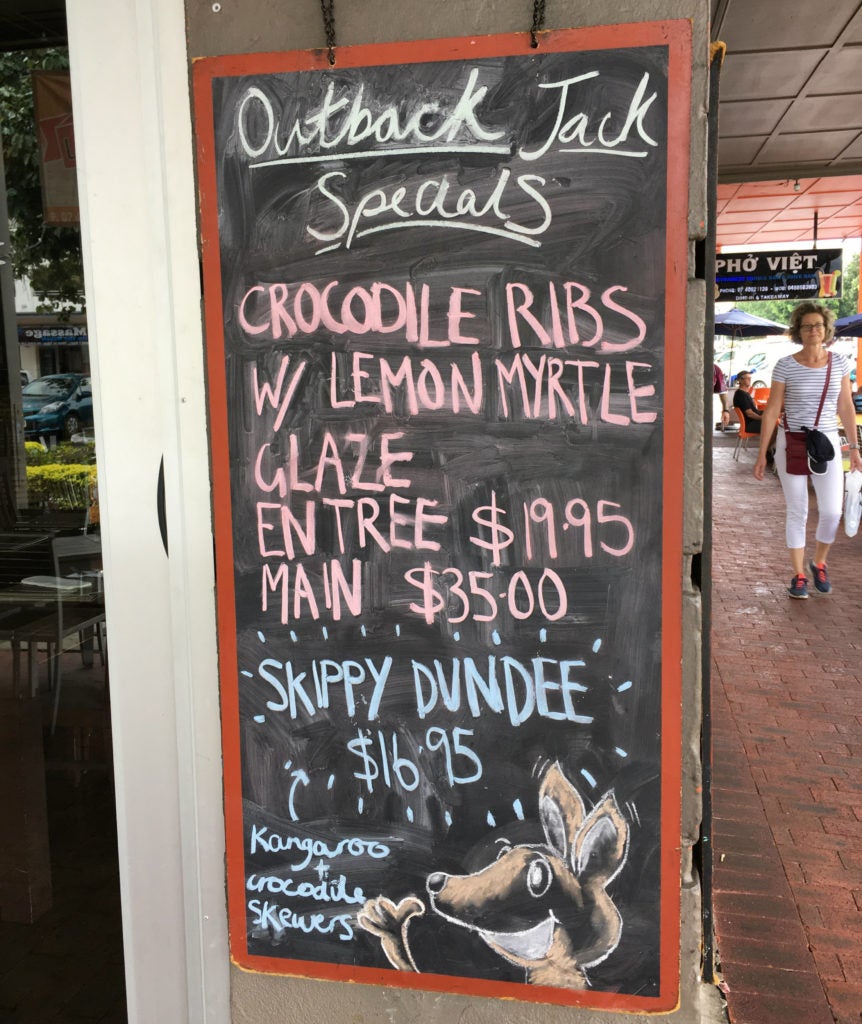 Outback Jack
Specials
CROCODILE RIBS
W/ LEMON MYRTLE
GLAZE
ENTREE $19.95
MAIN $35.00
SKIPPY DUNDEE
$16.95
Kangaroo
+
crocodile
SKEWERS
PHỞ VIỆT
DINE-IN & TAKEAWAY
Massage